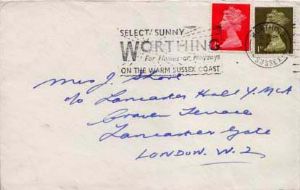 SELECT SUNNY
WORTHING
For Homes or Holidays
ON THE WARM SUSSEX COAST
SUSSEX
Mrs J.
c/o Lancaster Hall Y.M.C.A
Craven Terrace
Lancaster Gate
LONDON. W.2